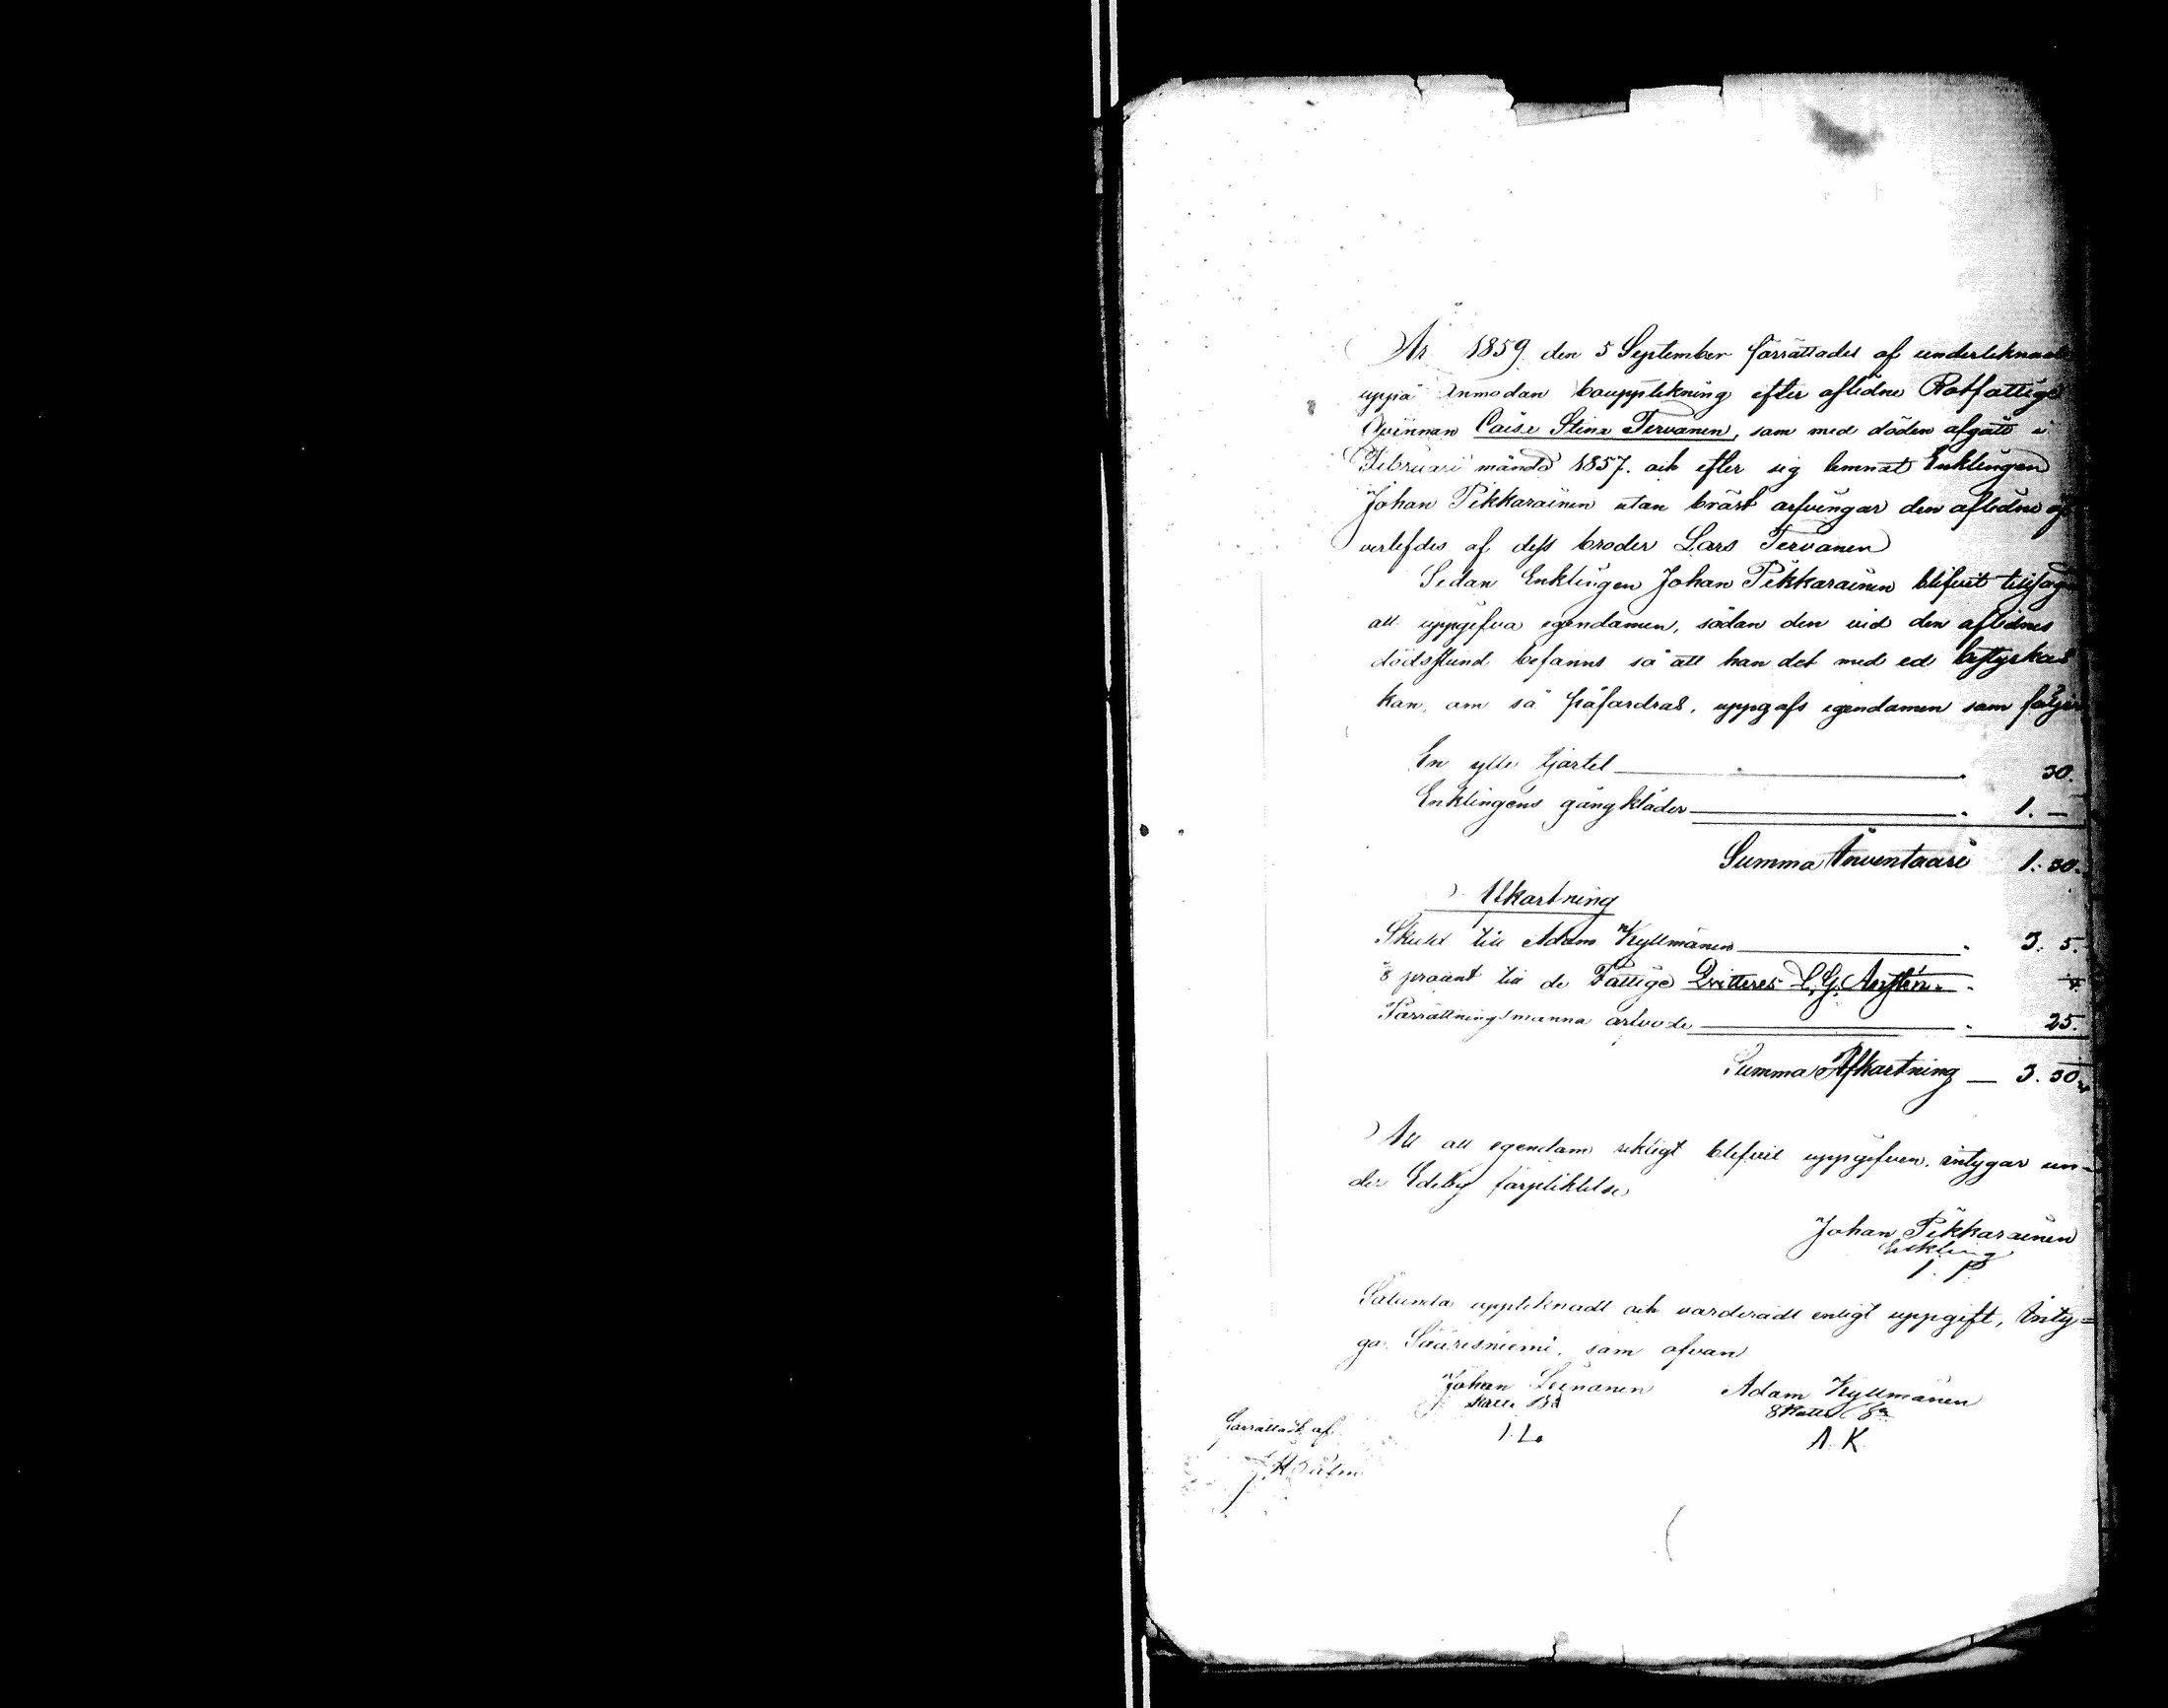 År 1859 den 5 September förrättades af underteknade
uppå anmodan bouppteknïng efter aflidne Rotfattige
Qvinnan Caisa Stina Tervanen, som med döden afgått i
Februari månad 1857. och efter sig lemnat Enklingen
Johan Pikkarainen utan bröst arfvingar den aflidne öf
verlefdes af dess broder Lars Tervanen
Sedan Enklingen Johan Pikkarainen blifvit tillsagd
att uppgifva egendomen, sådan den vid den aflidnes
dödsstund befanns så att han det med ed bestyrka
kan, om så påfordras, uppgafs egendomen som följer
En ylle kjortel 30.
Enklingens gångkläder 1. —
Summa Inventarie 1. 30.
Afkortning
Skuld till Adam Kyllmänen 3. 5.
procent till de Fattige Qvitteres L. G.
Förrättningsmanna arvode 25.
Summa Afkortning — 3. 30
Att all egendom riktigt blifvit uppgifven, intygar un-
der Edelig förpliktelse
Johan Pikkarainen
Enkling
I. P.
Sålunda uppteknadt och värderadt enligt uppgift, inty=
ga. Säräisniemi, som ofvan
Johan Leinonen Adam Kyllmänen
I. L. A. K.
Författadt af